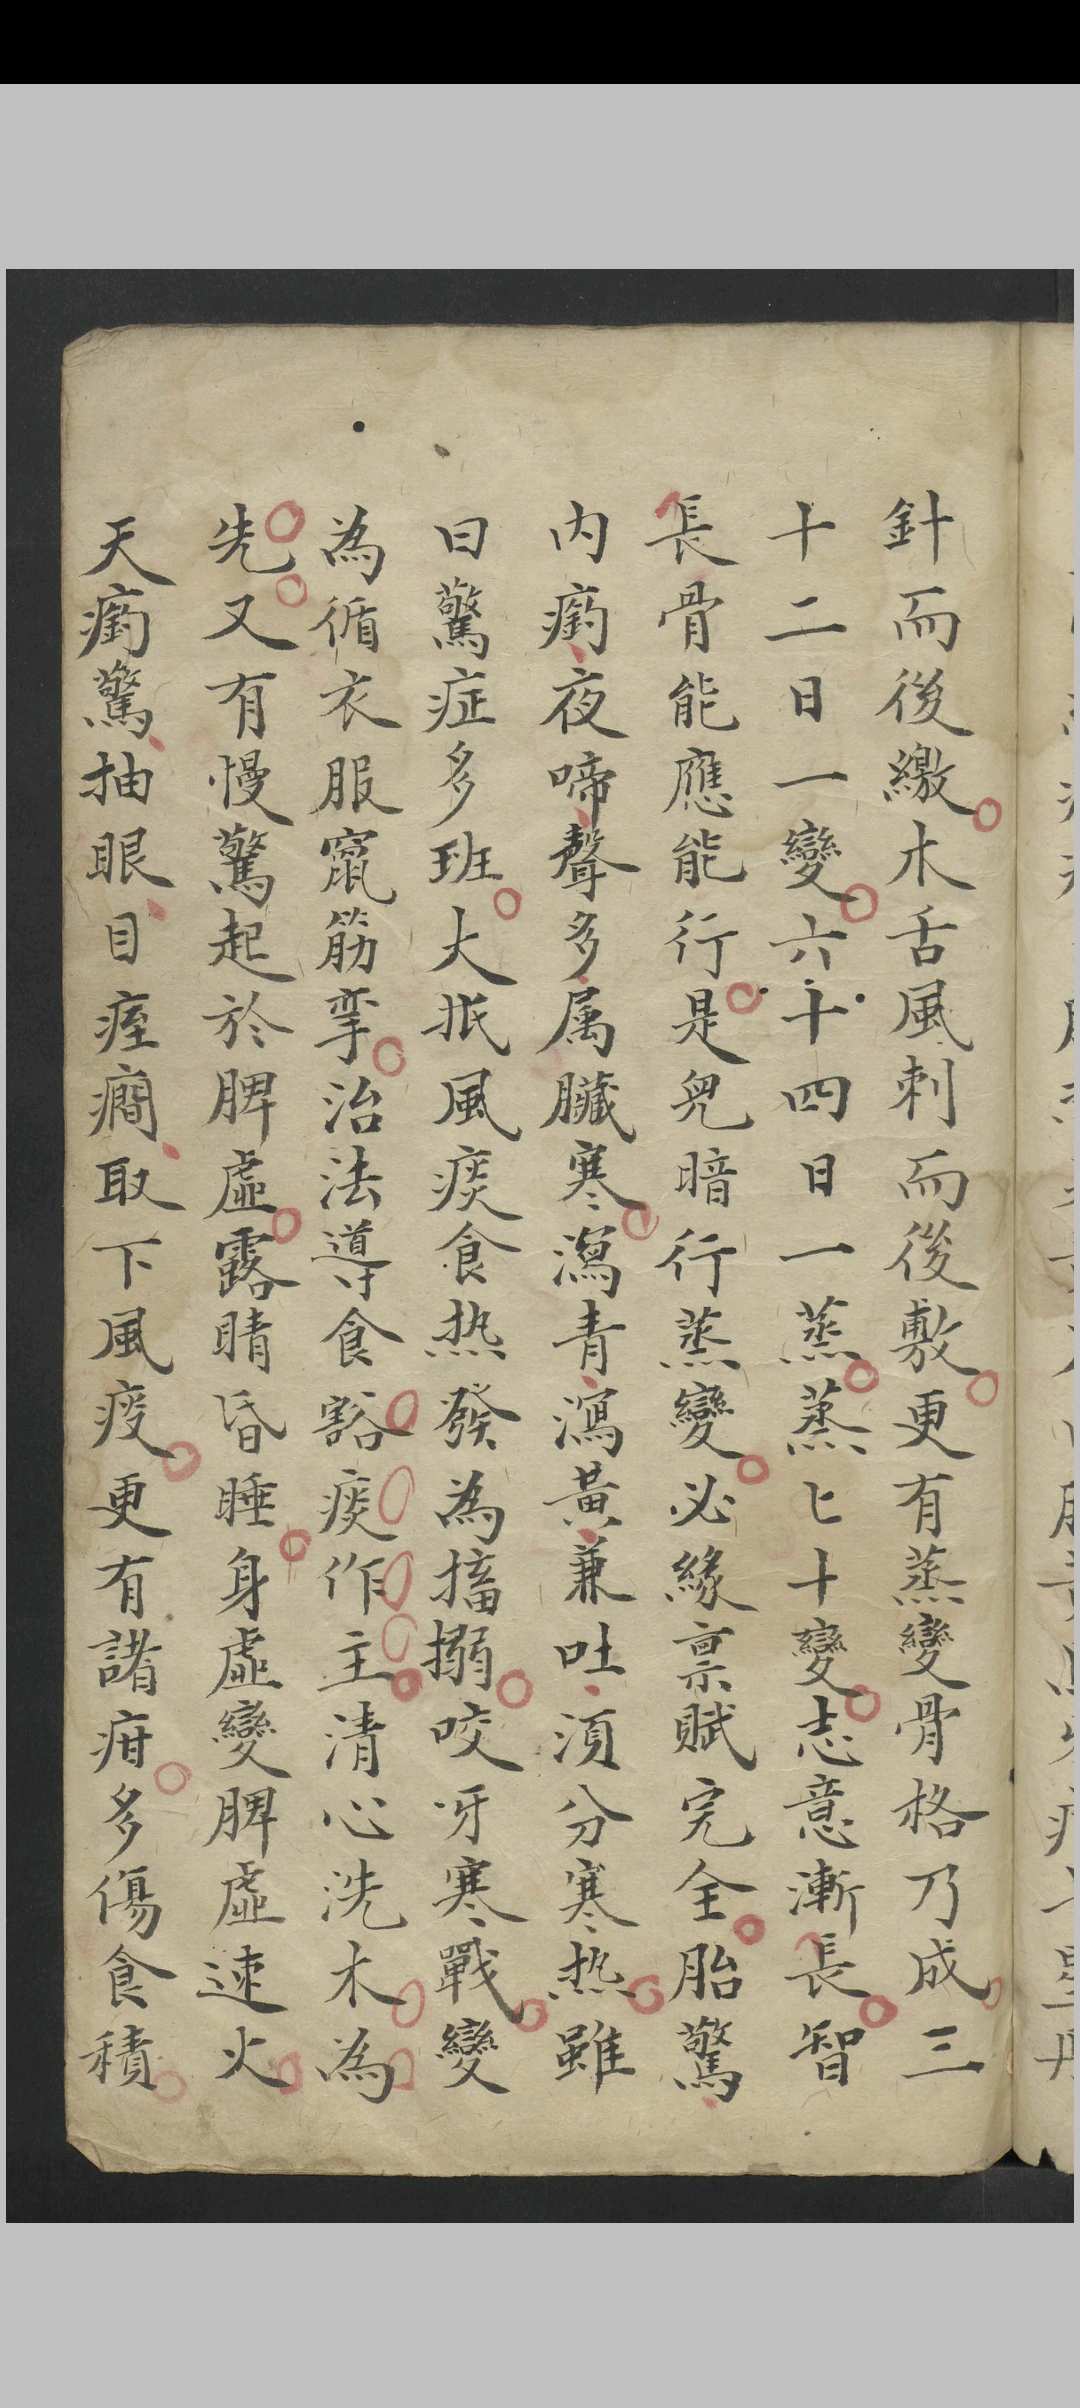 針而後繳木舌風刺而後敷更有蒸變骨格乃成三
十二日一變六十四日一蒸蒸七十變志意漸長智
長骨能應能行是兒暗行蒸變必緣禀賦完全胎驚
内瘹夜啼聲多属臟寒瀉青瀉黃兼吐須分寒热雖
曰驚症多班大抵風痰食热發為搐搦咬牙寒戰變
為循衣服竄筋挛治法導食豁痰作主清心洗木為
先又有慢驚起於脾虛露睛昏睡身虛變脾虛逮火
天瘹驚抽眼目痓癎取下風痰更有諸疳多傷食積